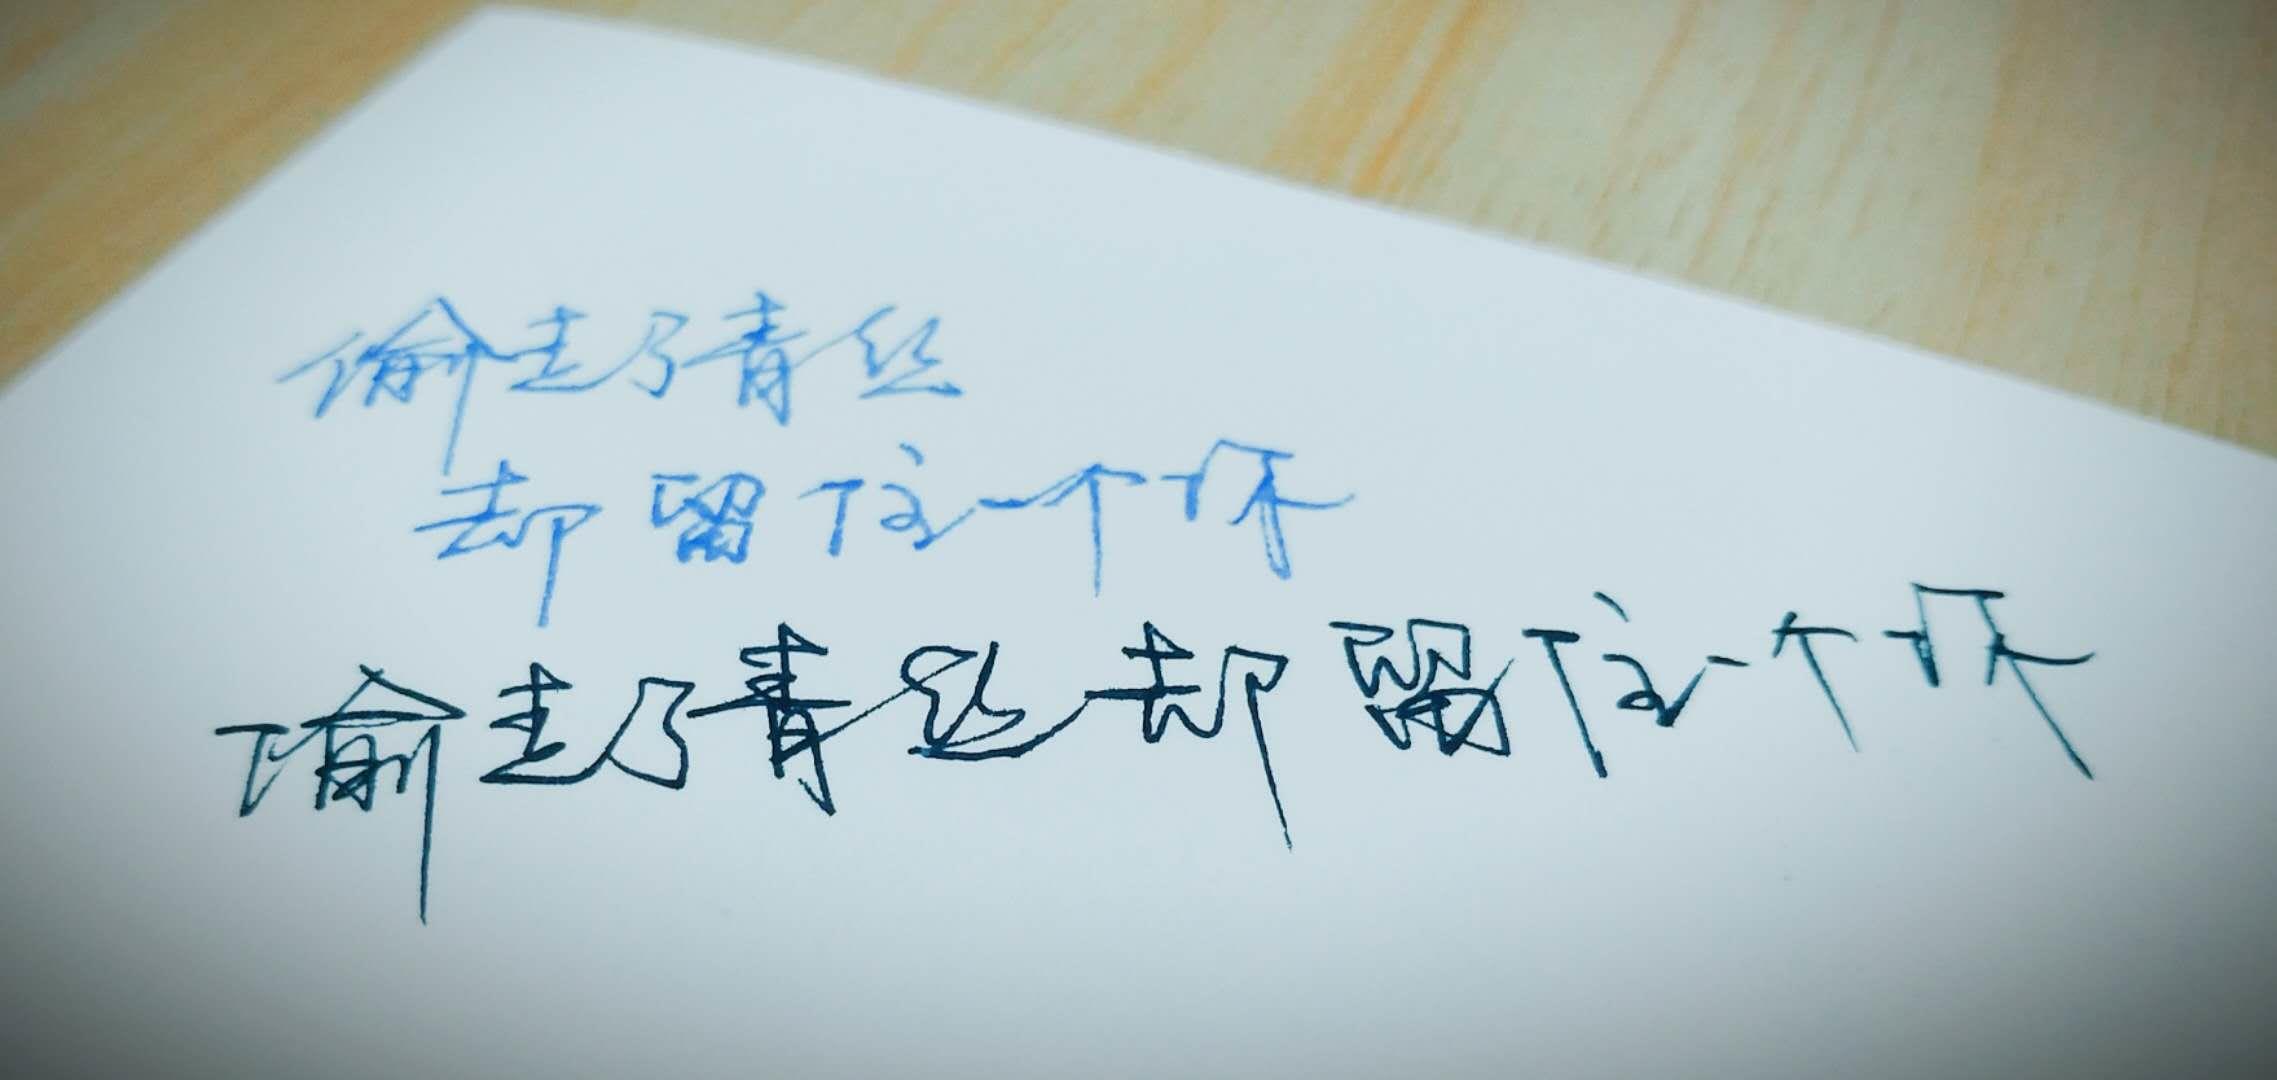 偷走了青丝
却留住一个你
偷走了青丝却留住一个你